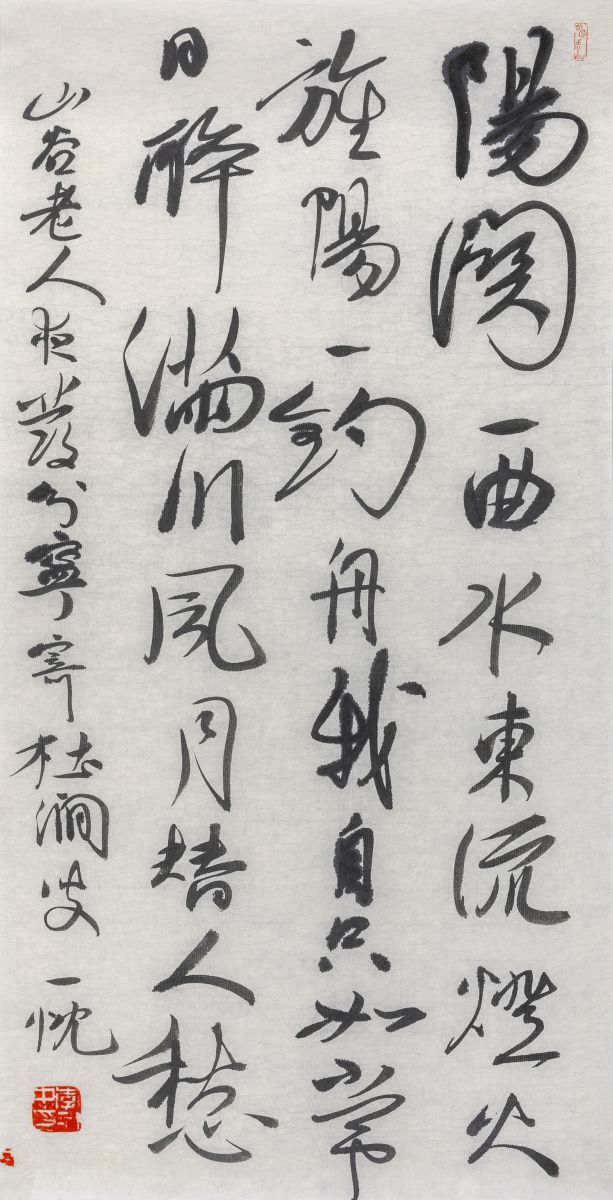 陽關一曲水東流燈火
旌陽一釣舟我自只如常
日醉滿川風月替人愁
山谷老人夜發分寧寄杜澗叟 一忱